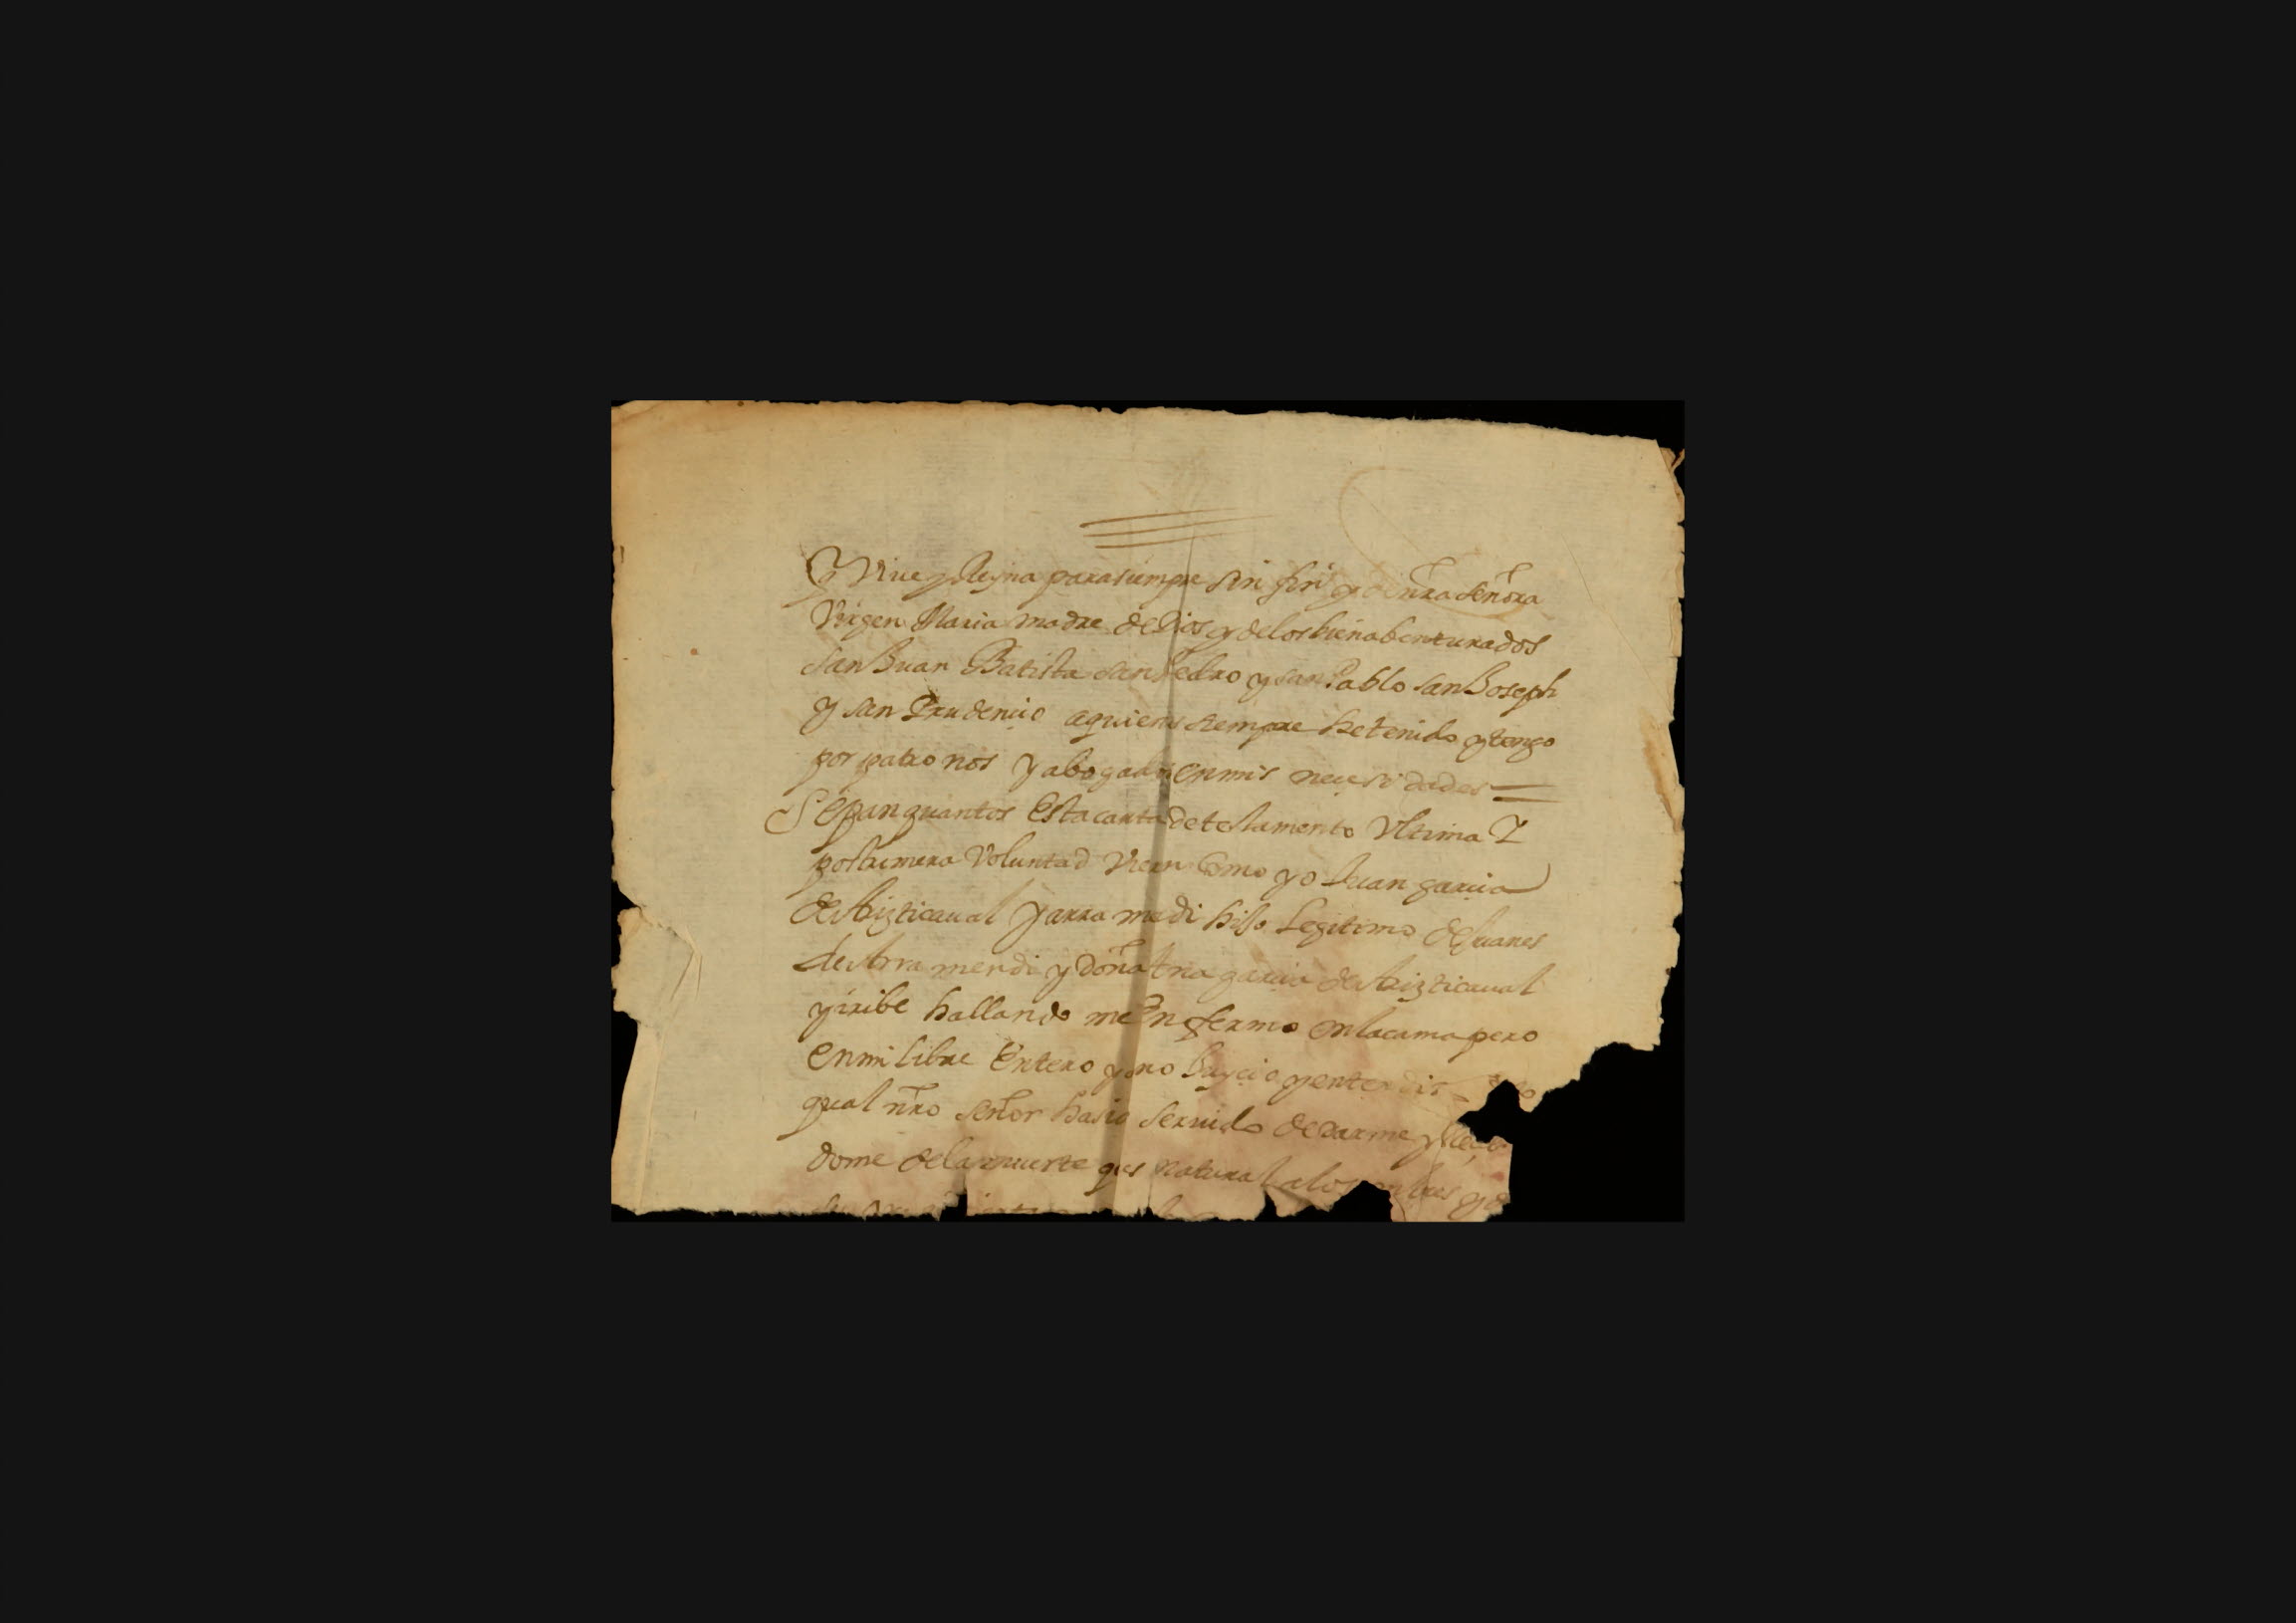 Y Viue y Reyna para siempre sin fin y de nra señora
Virgen Maria madre de Dios y de los bienabenturados
San Juan Batista san Pedro y san Pablo san Joseph
y san Prudencio a quienes siempre he tenido y tengo
por patronos y abogados en mis necesidades =
Sepan quantos esta carta de testamento Vltima Y
postrimera Voluntad Vieren Como yo Juan garcia
de Arizticaual Y arramendi hijo Legitimo de Juanes
de Arramendi y doña Ana garcia de Arizticaual
y iribe hallandome Enfermo en la cama pero
en mi libre Entero y juycio y
qual nro señor ha sido seruido de darme y
dome de la muerte ques natural a los onbres y